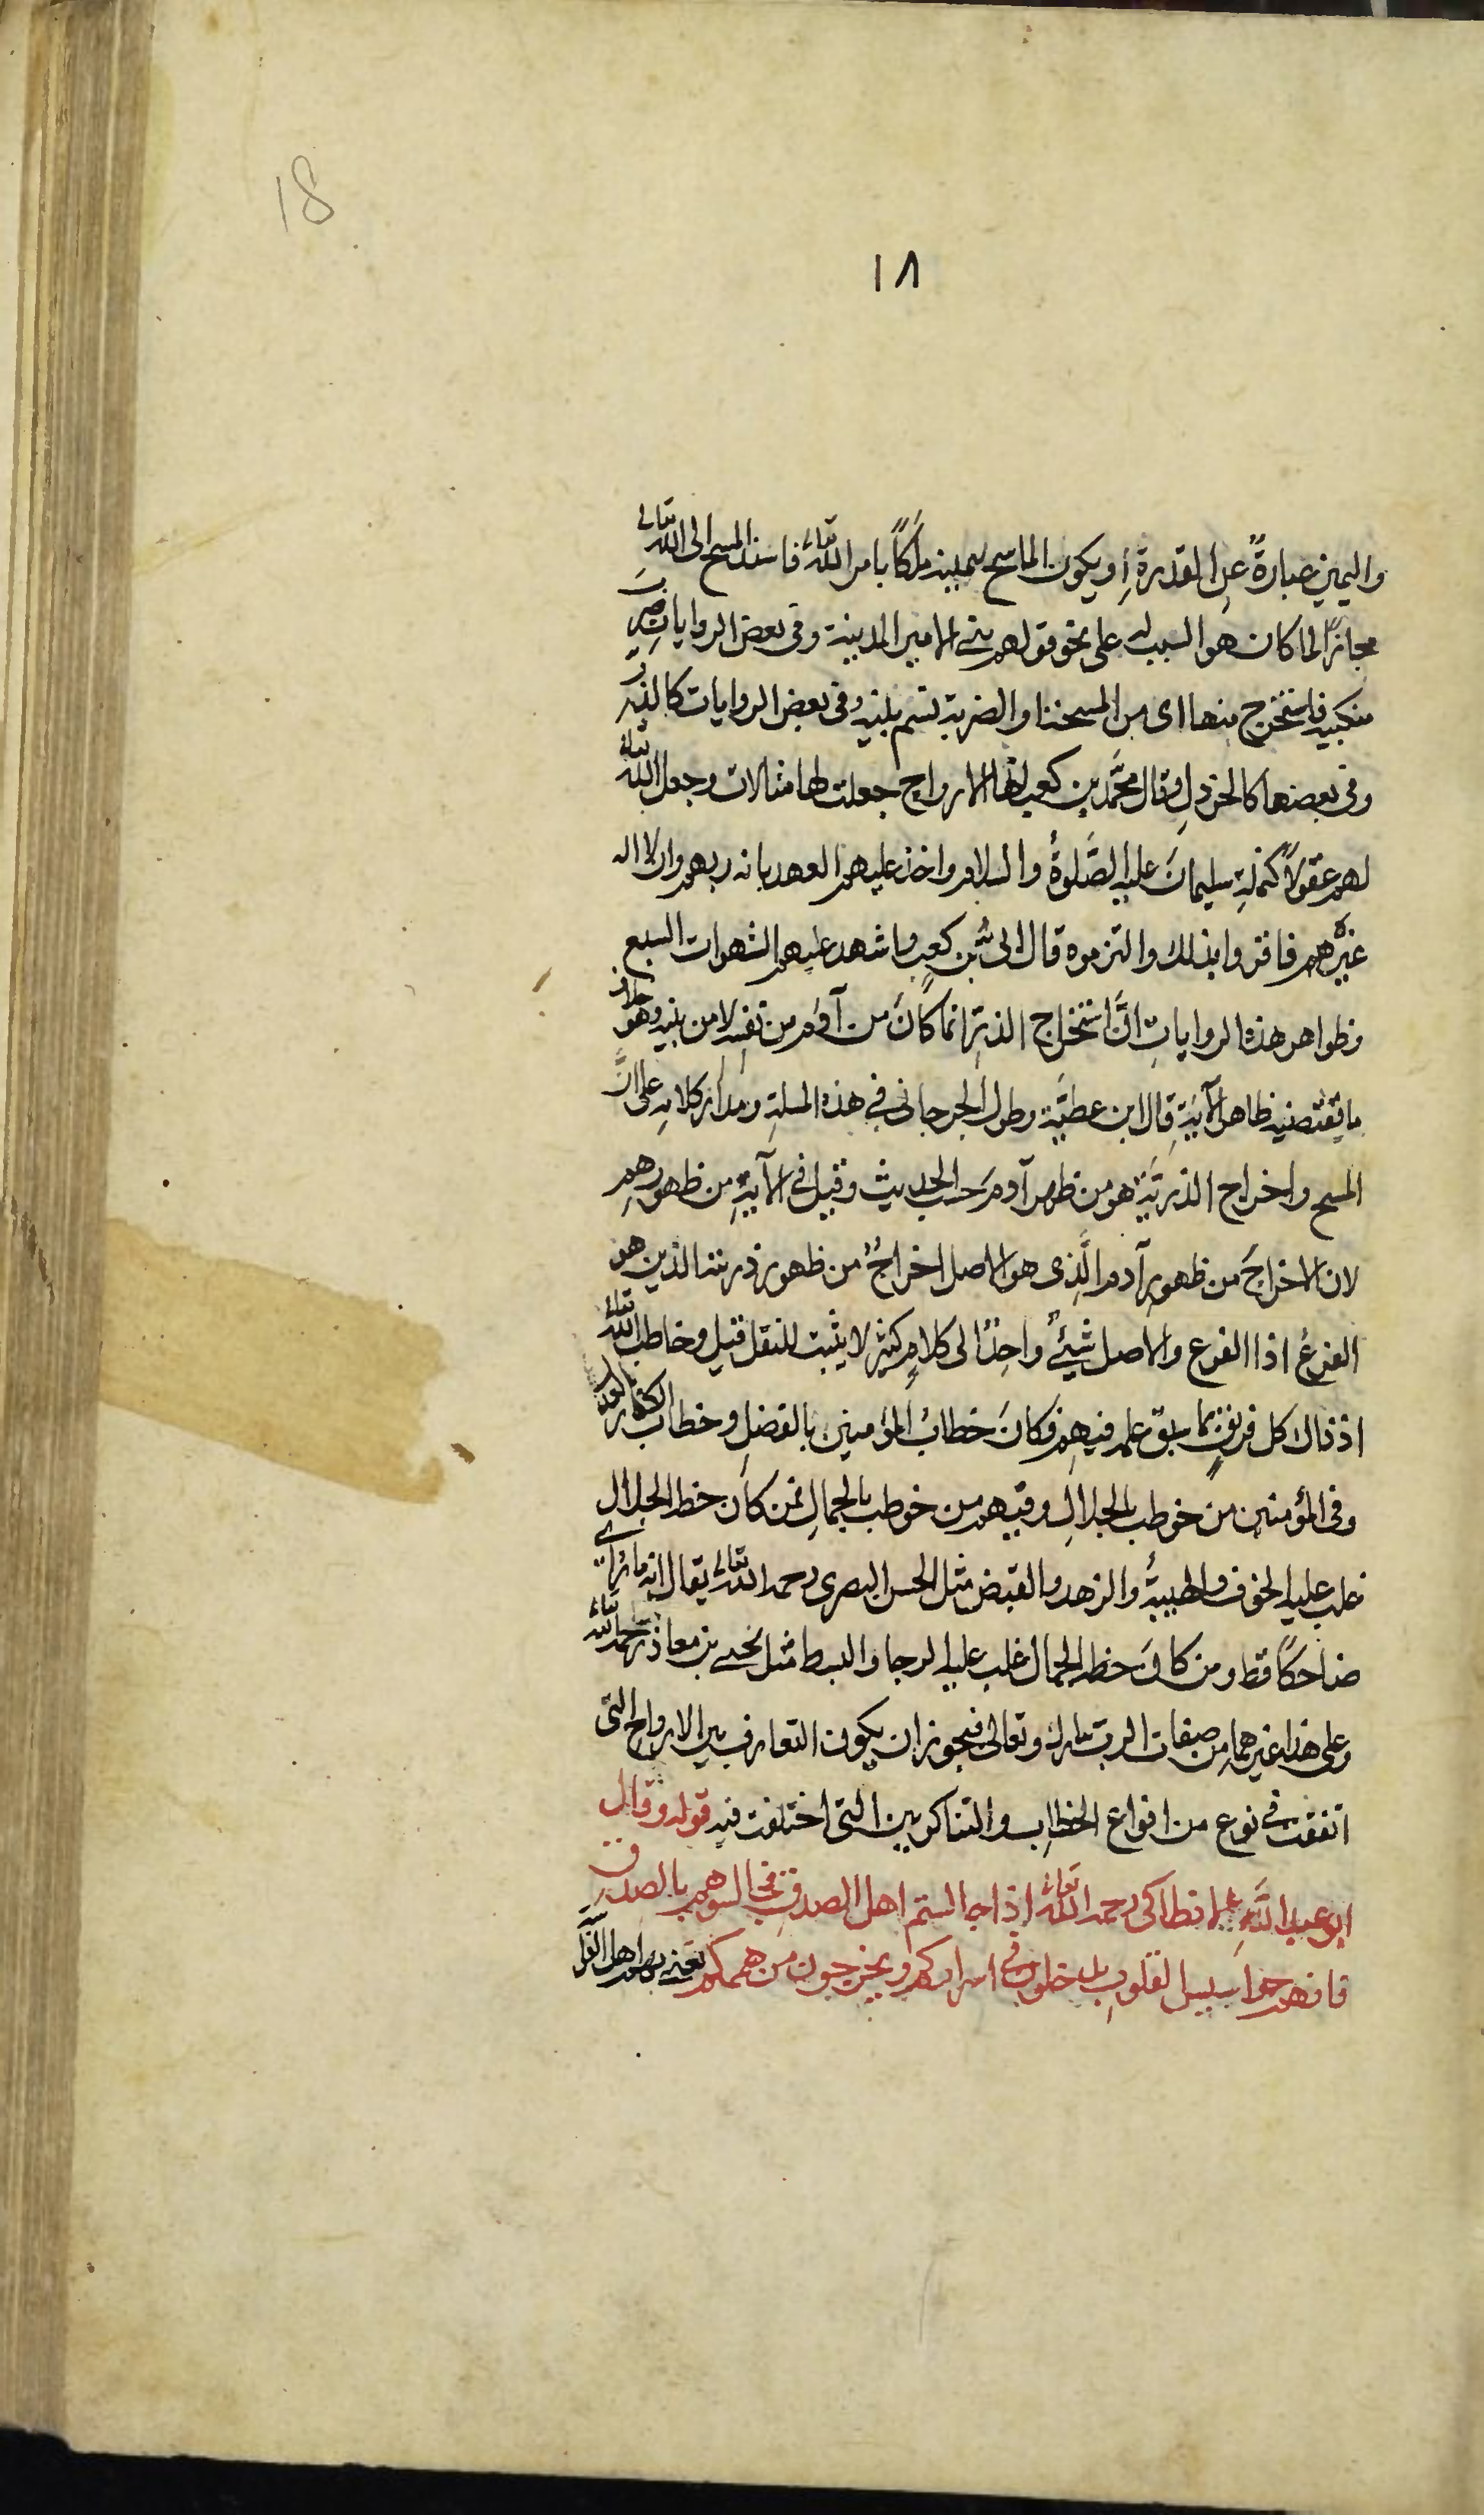 18
١٨
واليمين عبارةً عن القدرة او يكون الماسح بيمينه ملكًا بامر الله تعالى فاسند المسح الى الله تعالى
مجازًا لما كان هو السبب له على نحو قولهم بنى الامير المدينة وفى بعض الروايات ضرب
منكبيه فاستخرج منها اى من المسحة او الضربة نسم بنيه وفى بعض الروايات كالذر
وفى بعضها كالخردل وقال محمّد بن كعب انها الارواح جعلت لها مثالات وجعل الله تعالى
لهم عقولًا كنملة سليمان عليه الصَّلوة والسلام واخذ عليهم العهد بانه ربهم وان لا اله
غيره فاقروا بذلك والتزموه قال ابى بن كعب واشهد عليهم السموات السبع
وظواهر هذه الروايات انَّ استخراج الذر انما كان من آدم من نفسه لا من بنيه وهو خلاف
ما يقتضيه ظاهر الآية قال ابن عطيّة وطول الجرجانى فى هذه المسلة ومدار كلامه على انَّ
المسح واخراج الذريّة هو من ظهر آدم حسب الحديث وقيل فى الآية من ظهورهم
لان الاخراج من ظهور آدم الَّذى هو الاصل اخراجٌ من ظهور ذريته الذين هو
الفرع اذ الفرع والاصل شيئٌ واحد الى كلامٍ كثير لا يثبت للنقل قيل وخاطب الله تعالى
اذ ذاك كل فريقٍ بما سبق علمه فيهم فكان خطابُ المؤمنين بالفضل وخطاب الكفار بالعدل
وفى المؤمنين من خوطب بالجلال وفيهم من خوطب بالجمال فمن كان حظه الجلال
غلب عليه الخوف والهيبة والزهد والقبض مثل الحسن البصرى رحمه الله تعالى يقال انه ما رأى
ضاحكًا قط ومن كان حظه الجمال غلب عليه الرجا والبسط مثل يحيى بن معاذ رحمه الله تعالى
وعلى هذا غيرهما من صفات الرب تبارك وتعالى فيجوز ان يكون التعارف بين الارواح التى
اتفقت فى نوع من انواع الخطاب والتناكر بين التى اختلفت فيه قوله وقال
ابو عبد اللَّه الانطاكى رحمه الله تعالى اذا جالستم اهل الصدق فجالسوهم بالصدق
فانهم جواسيس القلوب يدخلون فى اسراركم ويخرجون من هممكم